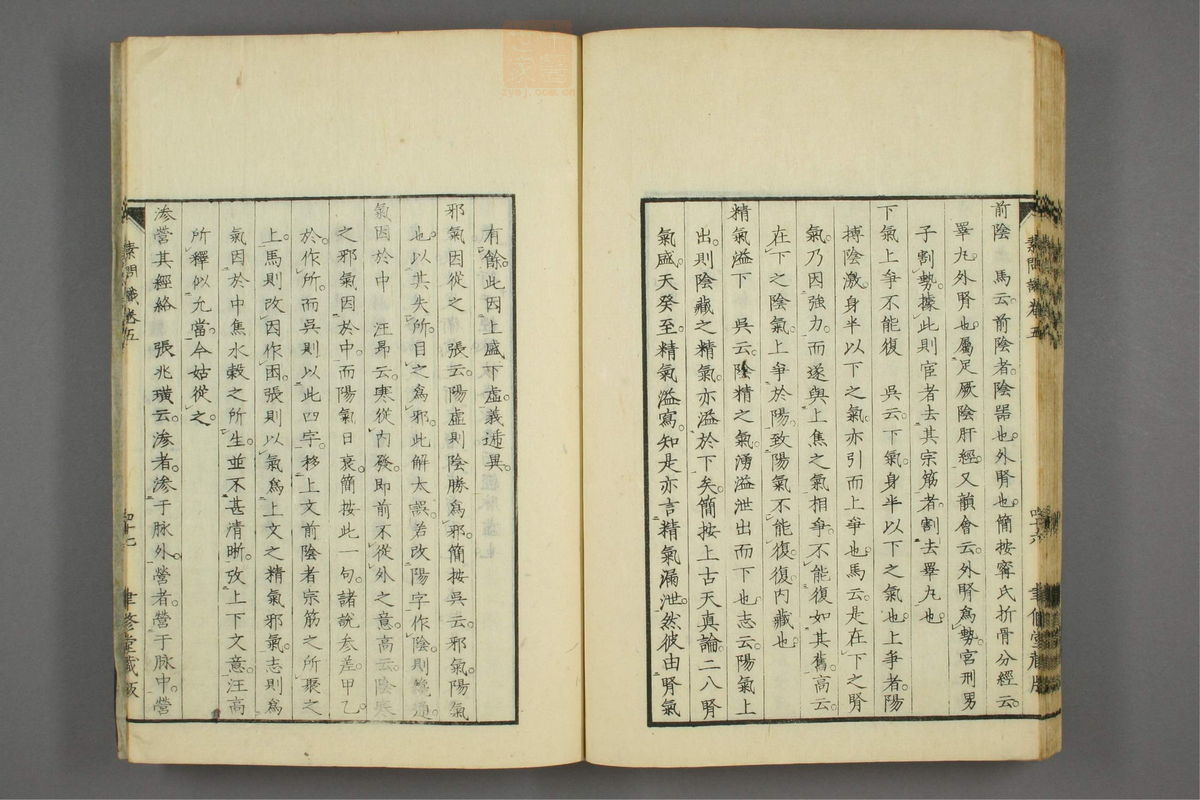 前陰　馬云。前陰者。陰器也。外腎也。簡按甯氏折骨分經云。
睪丸。外腎也。屬足厥陰肝經。又韻會云。外腎爲勢。宮刑男
子割勢。據此則宦者去其宗筋者。割去睪丸也。
下氣上爭不能復　吳云。下氣。身半以下之氣也。上爭者。陽
搏陰激。身半以下之氣。亦引而上爭也。馬云。是在下之腎
氣。乃因強力。而遂與上焦之氣相爭。不能復如其舊。高云。
在下之陰氣。上爭於陽。致陽氣不能復。復內藏也。
精氣溢下　吳云。陰精之氣。湧溢泄出而下也。志云。陽氣上
出。則陰藏之精氣。亦溢於下矣。簡按上古天真論。二八腎
氣盛。天癸至。精氣溢寫。知是亦言精氣漏泄。然彼由腎氣
素問識卷五
有餘。此因上盛下虛。義遞異。
邪氣因從之　張云。陽虛則陰勝爲邪。簡按吳云。邪氣陽氣
也。以其失所。目之爲邪。此解太誤。若改陽字作陰。則
氣因於中　汪昂云。寒從內發。即前不從外之意。高云。陰寒
之邪氣因於中。而陽氣日衰。簡按此一句。諸說參差。甲乙。
於。作所。而吳則以此四字。移上文前陰者宗筋之所聚之
上。馬則改因作困。張則以氣爲上文之精氣邪氣。志則爲
氣因於中焦水穀之所生。並不甚清晰。攷上下文意。汪高
所釋似允當。今姑從之。
滲營其經絡　張兆璜云。滲者。滲于脉外。營者。營于脉中。營
素問識卷五
四十七
聿修堂藏板